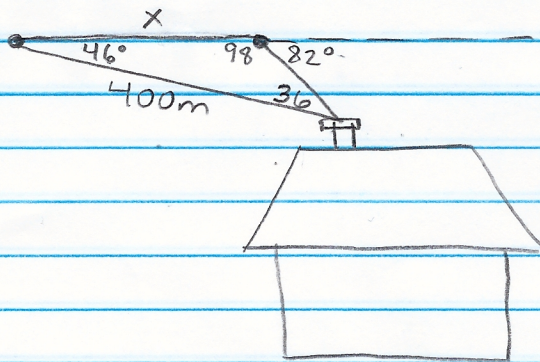 x
46° 98 82°
400m 36